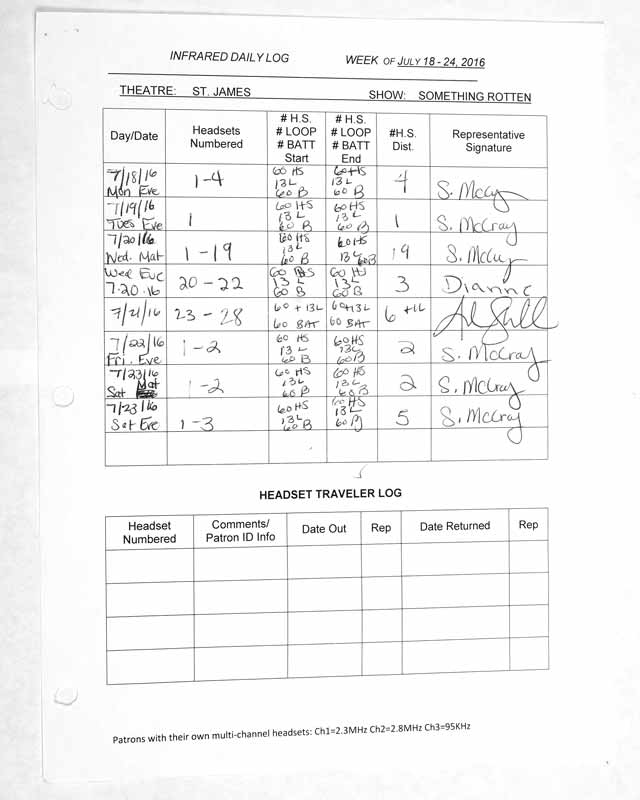 INFRARED DAILY LOG WEEK OF JULY 18 - 24, 2016
THEATRE: ST. JAMES SHOW: SOMETHING ROTTEN
Day/Date
Headsets
Numbered
# H.S.
# LOOP
# BATT
Start
# H.S.
# LOOP
# BATT
End
#H.S.
Dist.
Representative
Signature
7/18/16
Mon Eve
1-4
60 HS
13 L
60 B
60 HS
13 L
60 B
4
S. McCray
7/19/16
Tues Eve
1
60 HS
13 L
60 B
60 HS
13 L
60 B
1
S. McCray
7/20/16
Wed. Mat
1-19
60 HS
13 L
60 B
60 HS
13 L 60B
19
S. McCray
Wed Eve
7.20.16
20-22
60 HS
13 L
60 B
60 HS
13 L
60 B
3
Dianne
7/21/16
23-28
60 + 13L
60 BAT
60+13L
60 BAT
6 +1L
7/22/16
Fri. Eve
1-2
60 HS
13 L
60 B
60HS
13L
60B
2
S. McCray
7/23/16
Mat
Sat
1-2
60 HS
13L
60 B
60 HS
13L
60 B
2
S. McCray
7/23/16
Sat Eve
1-3
60HS
13L
60 B
60 HS
13 L
60 B
5
S. McCray
HEADSET TRAVELER LOG
Headset
Numbered
Comments/
Patron ID Info
Date Out
Rep
Date Returned
Rep
Patrons with their own multi-channel headsets: Ch1=2.3MHz Ch2=2.8MHz Ch3=95KHz